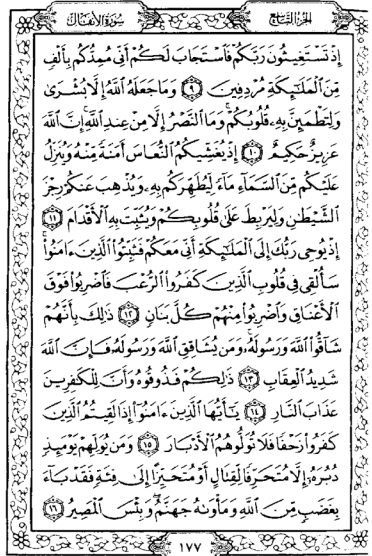 الجزء التاسع
سورة الأنفال
إِذْ تَسْتَغِيثُونَ رَبَّكُمْ فَٱسْتَجَابَ لَكُمْ أَنِّى مُمِدُّكُم بِأَلْفٍ
مِّنَ ٱلْمَلَٰٓئِكَةِ مُرْدِفِينَ ٩ وَمَا جَعَلَهُ ٱللَّهُ إِلَّا بُشْرَىٰ
وَلِتَطْمَئِنَّ بِهِۦ قُلُوبُكُمْ ۚ وَمَا ٱلنَّصْرُ إِلَّا مِنْ عِندِ ٱللَّهِ ۚ إِنَّ ٱللَّهَ
عَزِيزٌ حَكِيمٌ ١٠ إِذْ يُغَشِّيكُمُ ٱلنُّعَاسَ أَمَنَةً مِّنْهُ وَيُنَزِّلُ
عَلَيْكُم مِّنَ ٱلسَّمَآءِ مَآءً لِّيُطَهِّرَكُم بِهِۦ وَيُذْهِبَ عَنكُمْ رِجْزَ
ٱلشَّيْطَٰنِ وَلِيَرْبِطَ عَلَىٰ قُلُوبِكُمْ وَيُثَبِّتَ بِهِ ٱلْأَقْدَامَ ١١
إِذْ يُوحِى رَبُّكَ إِلَى ٱلْمَلَٰٓئِكَةِ أَنِّى مَعَكُمْ فَثَبِّتُوا۟ ٱلَّذِينَ ءَامَنُوا۟
سَأُلْقِى فِى قُلُوبِ ٱلَّذِينَ كَفَرُوا۟ ٱلرُّعْبَ فَٱضْرِبُوا۟ فَوْقَ
ٱلْأَعْنَاقِ وَٱضْرِبُوا۟ مِنْهُمْ كُلَّ بَنَانٍ ١٢ ذَٰلِكَ بِأَنَّهُمْ
شَآقُّوا۟ ٱللَّهَ وَرَسُولَهُۥ ۚ وَمَن يُشَاقِقِ ٱللَّهَ وَرَسُولَهُۥ فَإِنَّ ٱللَّهَ
شَدِيدُ ٱلْعِقَابِ ١٣ ذَٰلِكُمْ فَذُوقُوهُ وَأَنَّ لِلْكَٰفِرِينَ
عَذَابَ ٱلنَّارِ ١٤ يَٰٓأَيُّهَا ٱلَّذِينَ ءَامَنُوٓا۟ إِذَا لَقِيتُمُ ٱلَّذِينَ
كَفَرُوا۟ زَحْفًا فَلَا تُوَلُّوهُمُ ٱلْأَدْبَارَ ١٥ وَمَن يُوَلِّهِمْ يَوْمَئِذٍ
دُبُرَهُۥٓ إِلَّا مُتَحَرِّفًا لِّقِتَالٍ أَوْ مُتَحَيِّزًا إِلَىٰ فِئَةٍ فَقَدْ بَآءَ
بِغَضَبٍ مِّنَ ٱللَّهِ وَمَأْوَىٰهُ جَهَنَّمُ ۖ وَبِئْسَ ٱلْمَصِيرُ ١٦
١٧٧